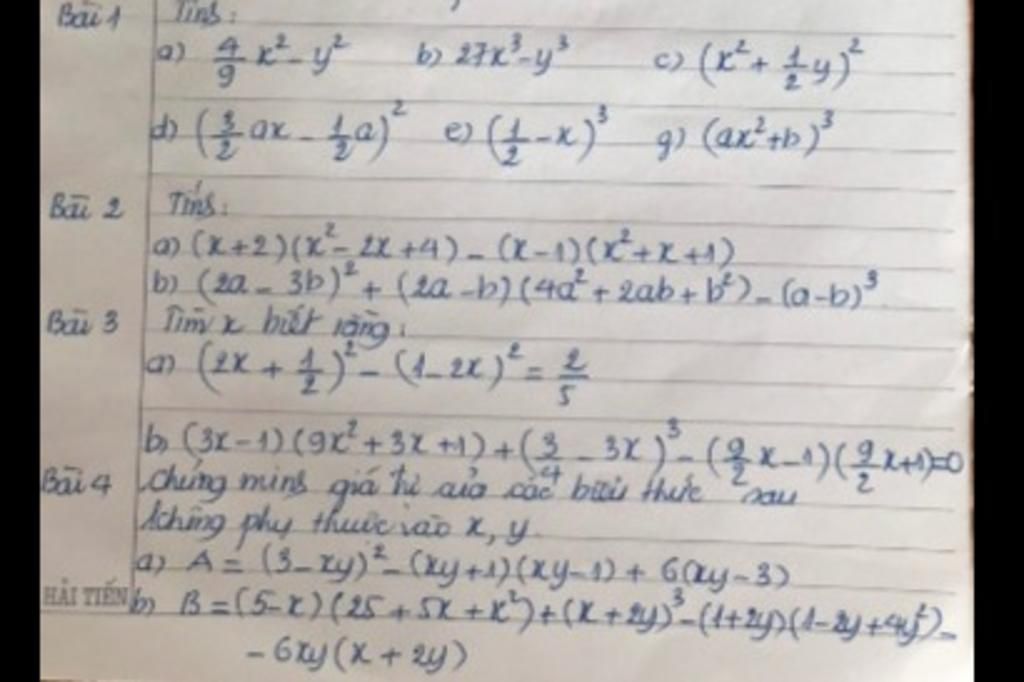 Bài 1 Tính:
a) 4/9 x² - y² b) 27x³ - y³ c) (x² + 1/2 y)²
d) (3/2 ax - 1/2 a)² e) (1/2 - x)³ g) (ax² + b)³
Bài 2 Tính:
a) (x+2)(x² - 2x + 4) - (x-1)(x² + x + 1)
b) (2a - 3b)² + (2a - b)(4a² + 2ab + b²) - (a-b)³
Bài 3 Tìm x biết rằng:
a) (2x + 1/2)² - (1 - 2x)² = 2/5
b) (3x - 1)(9x² + 3x + 1) + (3/4 - 3x)³ - (9/2 x - 1)(9/2 x + 1) = 0
Bài 4 Chứng minh giá trị của các biểu thức sau
không phụ thuộc vào x, y.
a) A = (3 - xy)² - (xy + 1)(xy - 1) + 6(xy - 3)
HẢI TIẾN b) B = (5 - x)(25 + 5x + x²) + (x + 2y)³ - (1 + 2y)(1 - 2y + 4y²) -
- 6xy(x + 2y)